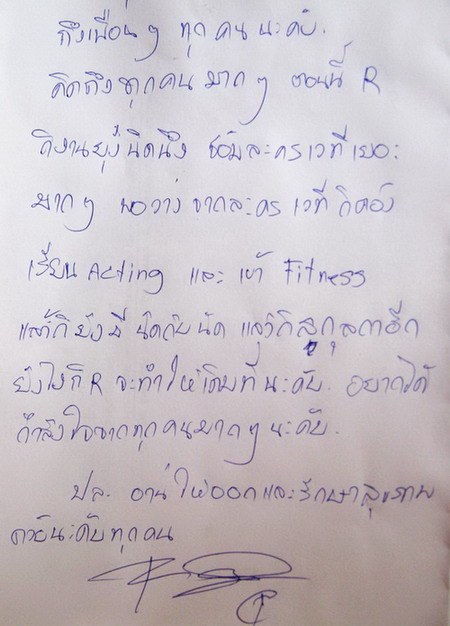 ถึงเพื่อนๆ ทุกคนนะคับ.
คิดถึงทุกคนมากๆ ตอนนี้ R
ก็งานยุ่งนิดนึง ซ้อมละครเวทีเยอะ
มากๆ พอว่างจากละครเวทีก็ต้อง
เรียน Acting และ เข้า Fitness
แล้วก็ยังมี นัดกับนัด แล้วก็
ยังไงก็ R จะทำให้เต็มที่นะคับ. อยากได้
กำลังใจจากทุกคนมากๆ นะคับ.
ปล. อ่านให้ออกและรักษาสุขภาพ
ด้วยนะคับทุกคน